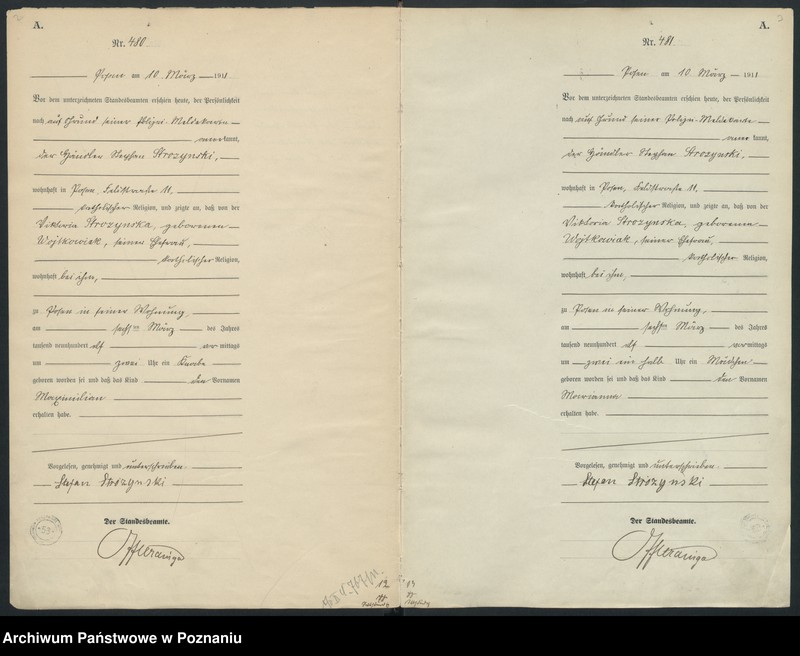 A.
Nr. 480
Posen am 10. März 1911
Vor dem unterzeichneten Standesbeamten erschien heute, der Persönlichkeit
nach auf Grund seiner Polizei-Meldekarte
anerkannt,
der Händler Stephan Strozynski,
wohnhaft in Posen, 11,
katholischer Religion, und zeigte an, daß von der
Viktoria Strozynska, geborenen
Wojtkowiak, seiner Ehefrau,
katholischer Religion,
wohnhaft bei ihm,
zu Posen in seiner Wohnung,
am sechsten März des Jahres
tausend neunhundert elf vormittags
um zwei Uhr ein Knabe
geboren worden sei und daß das Kind den Vornamen
Maximilian
erhalten habe.
Vorgelesen, genehmigt und unterschrieben
Stefan Strozynski
Der Standesbeamte.
A.
Nr. 481
Posen am 10. März 1911
Vor dem unterzeichneten Standesbeamten erschien heute, der Persönlichkeit
nach auf Grund seiner Polizei-Meldekarte
anerkannt,
der Händler Stephan Strozynski,
wohnhaft in Posen, 11,
katholischer Religion, und zeigte an, daß von der
Viktoria Strozynska, geborenen
Wojtkowiak, seiner Ehefrau,
katholischer Religion,
wohnhaft bei ihm,
zu Posen in seiner Wohnung,
am sechsten März des Jahres
tausend neunhundert elf vormittags
um zwei ein halb Uhr ein Mädchen
geboren worden sei und daß das Kind den Vornamen
Marianna
erhalten habe.
Vorgelesen, genehmigt und unterschrieben
Stefan Strozynski
Der Standesbeamte.
12
13
Archiwum Państwowe w Poznaniu